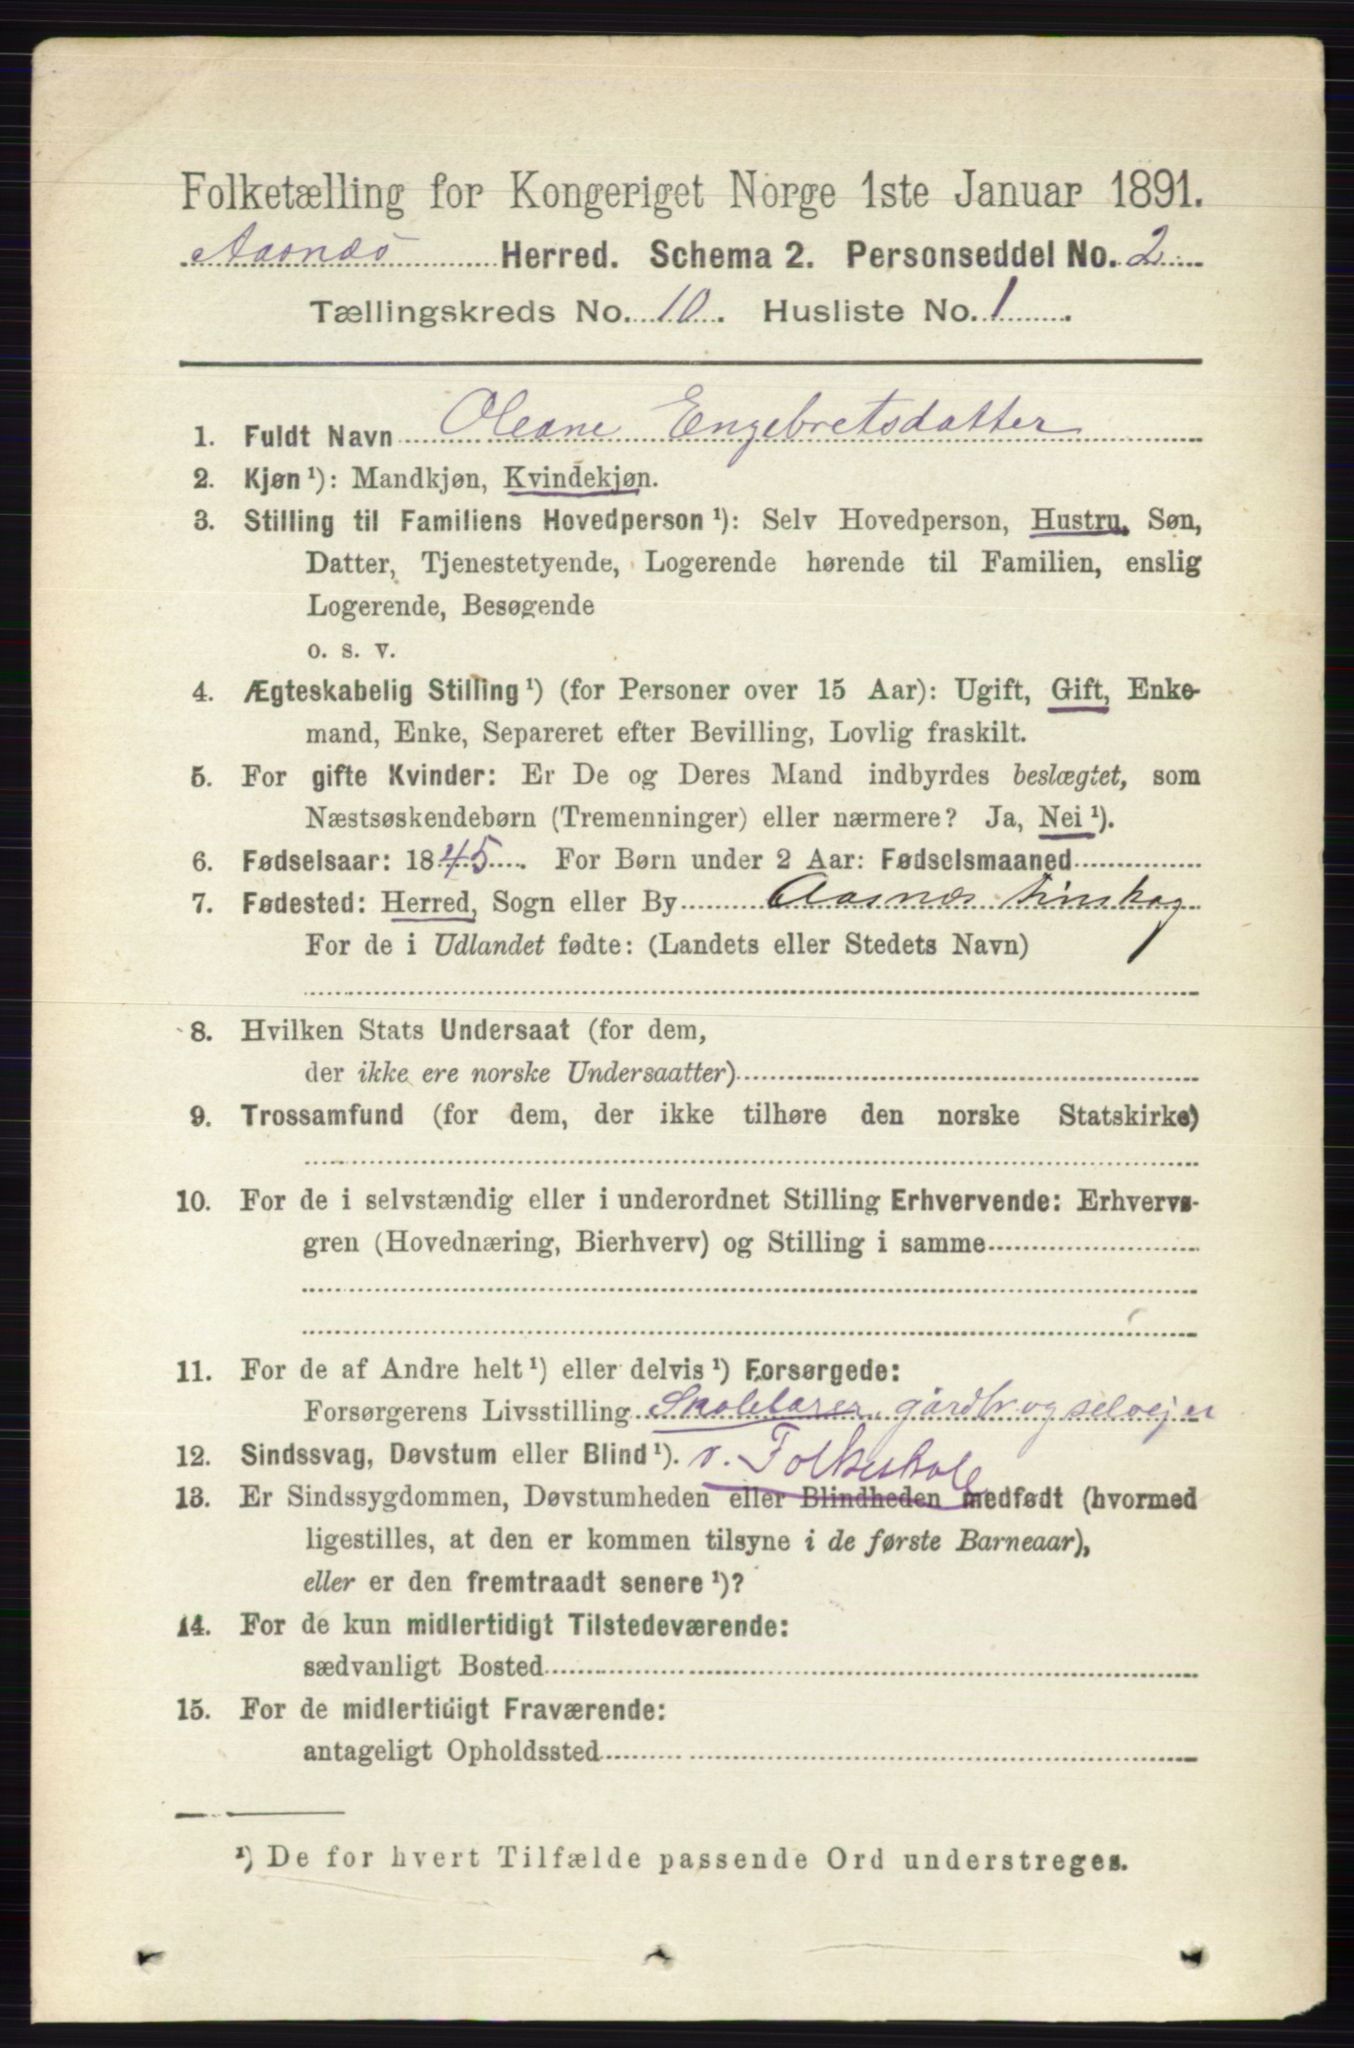 Folketælling for Kongeriget Norge 1ste Januar 1891.
Aasnes Herred. Schema 2. Personseddel No. 2
Tællingskreds No. 10. Husliste No. 1.
1. Fuldt Navn Oleane Engebretsdatter
2. Kjøn ¹): Mandkjøn, Kvindekjøn.
3. Stilling til Familiens Hovedperson ¹): Selv Hovedperson, Hustru, Søn,
Datter, Tjenestetyende, Logerende hørende til Familien, enslig
Logerende, Besøgende
o. s. v.
4. Ægteskabelig Stilling ¹) (for Personer over 15 Aar): Ugift, Gift, Enke-
mand, Enke, Separeret efter Bevilling, Lovlig fraskilt.
5. For gifte Kvinder: Er De og Deres Mand indbyrdes beslægtet, som
Næstsøskendebørn (Tremenninger) eller nærmere? Ja, Nei ¹).
6. Fødselsaar: 1845. For Børn under 2 Aar: Fødselsmaaned
7. Fødested: Herred, Sogn eller By Aasnæs
For de i Udlandet fødte: (Landets eller Stedets Navn)
8. Hvilken Stats Undersaat (for dem,
der ikke ere norske Undersaatter)
9. Trossamfund (for dem, der ikke tilhøre den norske Statskirke)
10. For de i selvstændig eller i underordnet Stilling Erhvervende: Erhvervs-
gren (Hovednæring, Bierhverv) og Stilling i samme
11. For de af Andre helt ¹) eller delvis ¹) Forsørgede:
Forsørgerens Livsstilling Skolelærer, gårdbr og selvejer
12. Sindssvag, Døvstum eller Blind ¹). v. Folkeskole
13. Er Sindssygdommen, Døvstumheden eller Blindheden medfødt (hvormed
ligestilles, at den er kommen tilsyne i de første Barneaar),
eller er den fremtraadt senere ¹)?
14. For de kun midlertidigt Tilstedeværende:
sædvanligt Bosted
15. For de midlertidigt Fraværende:
antageligt Opholdssted
¹) De for hvert Tilfælde passende Ord understreges.